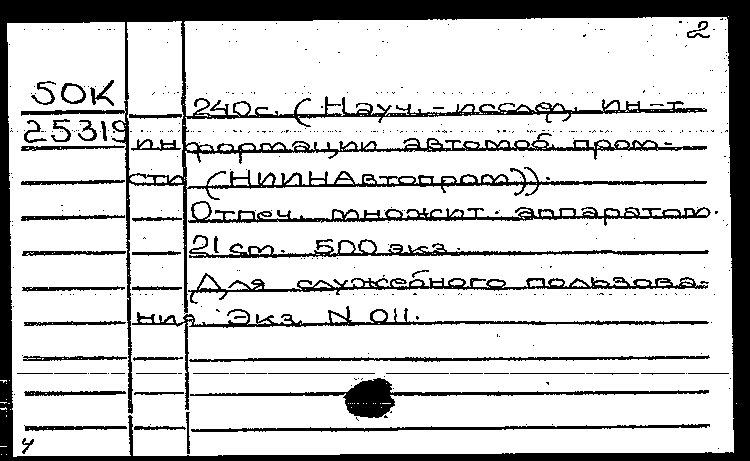 2
50К
25319
240с. (Науч.-исслед. ин-т
информации автомоб. пром-
сти (НИИНАвтопром)).
Отпеч. множит. аппаратом.
21 см. 500 экз.
Для служебного пользова-
ния. Экз. N 011.
4